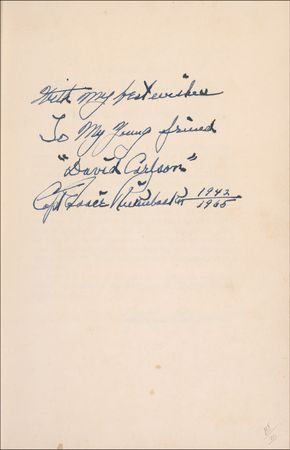 With my best wishes
To My Young friend
"David Carlson"
Capt Eddie Rickenbacker 1942
1965